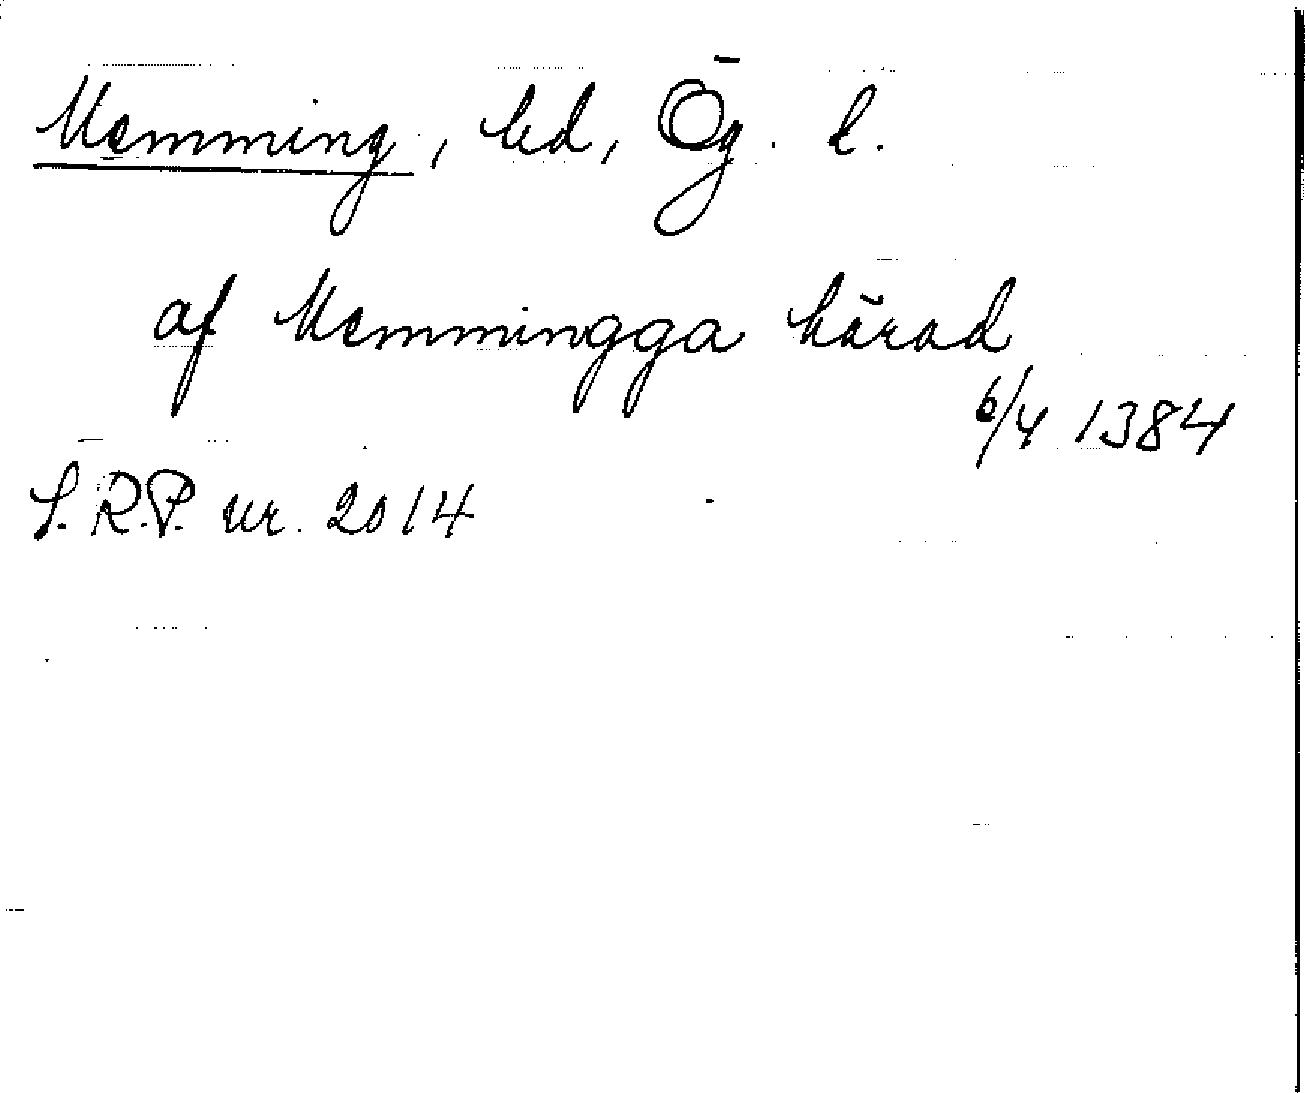 Memming, hd, Ög. l.
af Memmingga härad
6/4 1384
S.R.P. nr. 2014